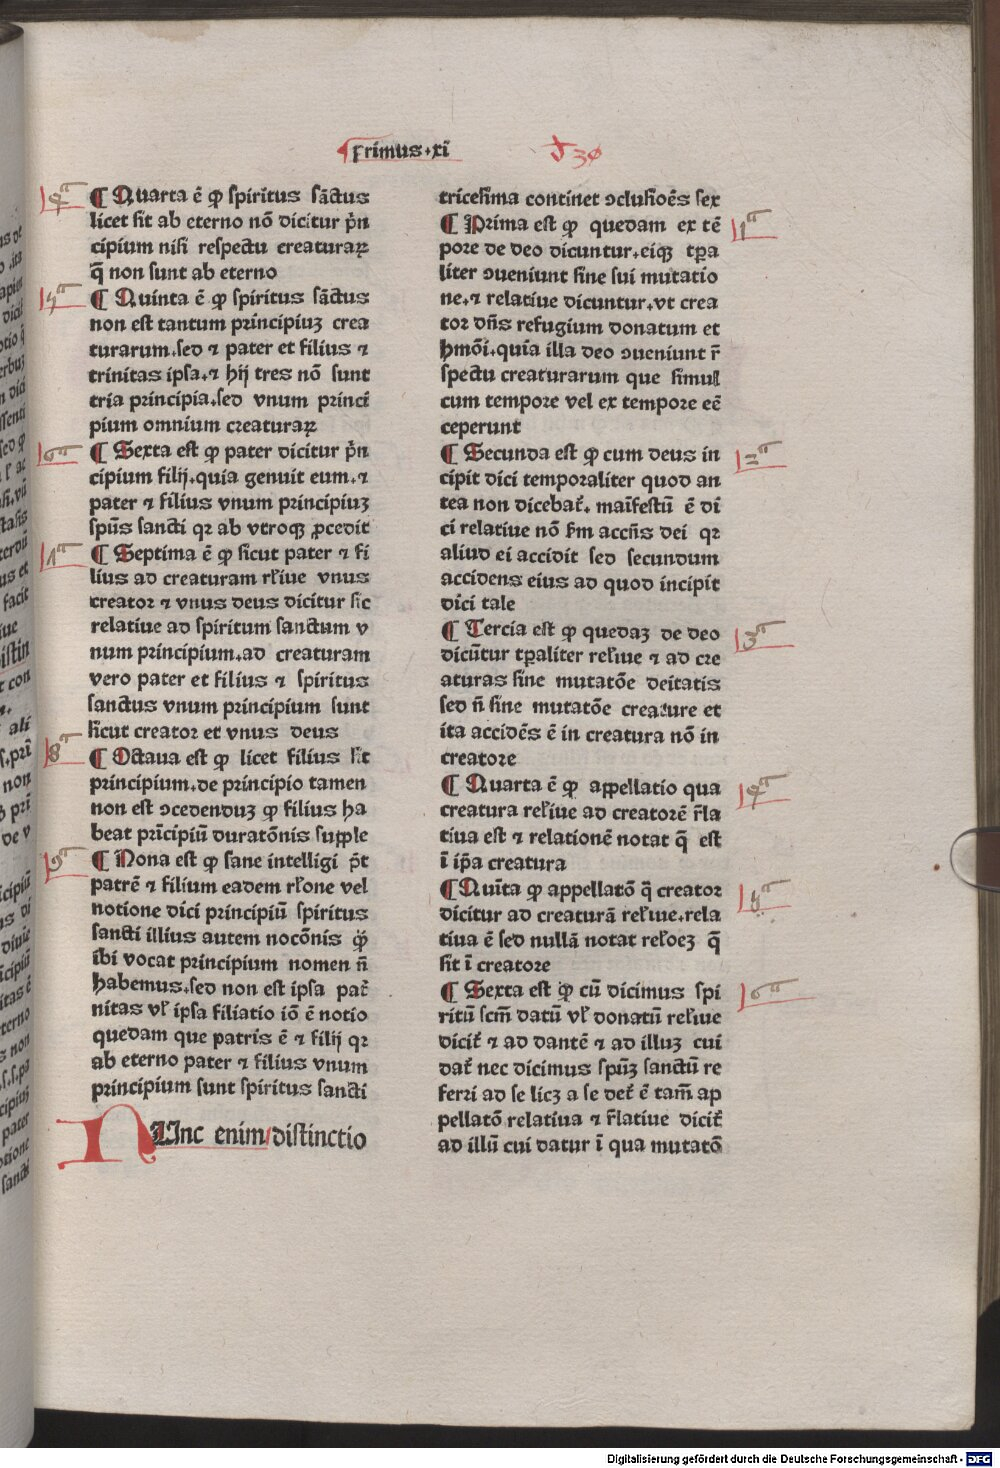 Primus·xi
¶ Quarta ē ꝙ spiritus sāctus
licet sit ab eterno nō dicitur pͥn
cipium nisi respectu creaturaꝝ
q̄ non sunt ab eterno
¶ Quinta ē ꝙ spiritus sāctus
non est tantum principiuʒ crea
turarum.sed ⁊ pater et filius ⁊
trinitas ipsa.⁊ hij tres nō sunt
tria principia.sed vnum princi
pium omnium creaturaꝝ
¶ Sexta est ꝙ pater dicitur pͥn
cipium filij.quia genuit eum.⁊
pater ⁊ filius vnum principiuʒ
spūs sancti qꝛ ab vtroqʒ ꝓcedit
¶ Septima ē ꝙ sicut pater ⁊ fi
lius ad creaturam rl̓iue vnus
creator ⁊ vnus deus dicitur sic
relatiue ad spiritum sanctum v
num principium.ad creaturam
vero pater et filius ⁊ spiritus
sanctus vnum principium sunt
sicut creator et vnus deus
¶ Octaua est ꝙ licet filius sit
principium.de principio tamen
non est ɔcedenduʒ ꝙ filius ha
beat prīcipiū duratōnis supple
¶ Nona est ꝙ sane intelligi pōt
patrē ⁊ filium eadem rl̓one vel
notione dici principiū spiritus
sancti illius autem nocōnis ꝙ̄
ibi vocat principium nomen n̄
habemus.sed non est ipsa pat̓
nitas vl̓ ipsa filiatio iō ē notio
quedam que patris ē ⁊ filij qꝛ
ab eterno pater ⁊ filius vnum
principium sunt spiritus sancti
NUnc enim distinctio
tricesima continet ɔclusioēs sex
¶ Prima est ꝙ quedam ex tē
pore de deo dicuntur.eiqʒ tꝑa
liter ɔueniunt sine sui mutatio
ne.⁊ relatiue dicuntur.vt crea
tor dn̄s refugium donatum et
hmōi.quia illa deo ɔueniunt r̄
spectu creaturarum que simul
cum tempore vel ex tempore eē
ceperunt
¶ Secunda est ꝙ cum deus in
cipit dici temporaliter quod an
tea non dicebat̓. maīfestū ē di
ci relatiue nō ẜm accn̄s dei qꝛ
aliud ei accidit sed secundum
accidens eius ad quod incipit
dici tale
¶ Tercia est ꝙ quedaʒ de deo
dicūtur tꝑaliter rel̓iue ⁊ ad cre
aturas sine mutatōe deitatis
sed n̄ sine mutatōe creature et
ita accidēs ē in creatura nō in
creatore
¶ Quarta ē ꝙ appellatio qua
creatura rel̓iue ad creatorē r̄la
tiua est ⁊ relationē notat q̄ est
ī ip̄a creatura
¶ Quīta ꝙ appellatō q̄ creator
dicitur ad creaturā rel̓iue.rela
tiua ē sed nullā notat rel̓oeʒ q̄
sit ī creatore
¶ Sexta est ꝙ cū dicimus spi
ritū scm̄ datū vl̓ donatū rel̓iue
dicit̓ ⁊ ad dantē ⁊ ad illuʒ cui
dat̓ nec dicimus spūʒ sanctū re
ferri ad se licʒ a se det̓ ē tam̄ ap
pellatō relatiua ⁊ r̄latiue dicit̓
ad illū cui datur ī qua mutatō
4ᵃ
5ᵃ
6ᵃ
7ᵃ
8ᵃ
9ᵃ
1ᵃ
2ᵃ
3ᵃ
4ᵃ
5ᵃ
6ᵃ
Digitalisierung gefördert durch die Deutsche Forschungsgemeinschaft - DFG